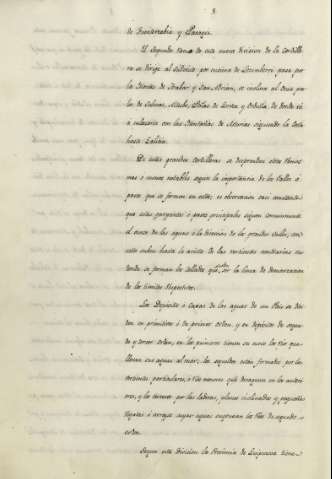 8
de Fuenterrabia y Pasages.
El segundo ramo de esta nueva division de la Cordille
ra se dirige al Sudoeste por encima de pasa por
la Sierras de Aralar y San Adrian, se inclina al Oeste por
las de Salinas, Peñas de y Orduña, de donde vá
á enlazarse con las Montañas de Asturias siguiendo la Costa
hasta Galicia.
De estas grandes Cordilleras se desprenden otros Ramos
mas ó menos notables segun la importancia de los Valles ó
pasos que se forman en ellos; se observará casi constante
que estas gargantas ó pasos principales siguen comunmente
el curso de las aguas ó la direccion de los grandes valles, con
esto suben hasta la arista de las vertientes contrarias en
donde se forman los collados que son la linea de demarcacion
de los limites respectivos.
Los Depósitos ó Cajas de las aguas de un Pais se divi
den en primitivos ó de primer orden y en depositos de segun
do y tercer orden, en los primeros tienen su curso los Rios que
llevan sus aguas al mar; los segundos estan formados por las
vertientes particulares, ó Rios menores que desaguan en los anterio
res, y los terceros por las laderas, planos inclinados y pequeñas
regatas ó arroyos cuyas aguas engruesan los Rios de segundo
orden.
Segun esta Division la Provincia de Guipuzcoa tiene